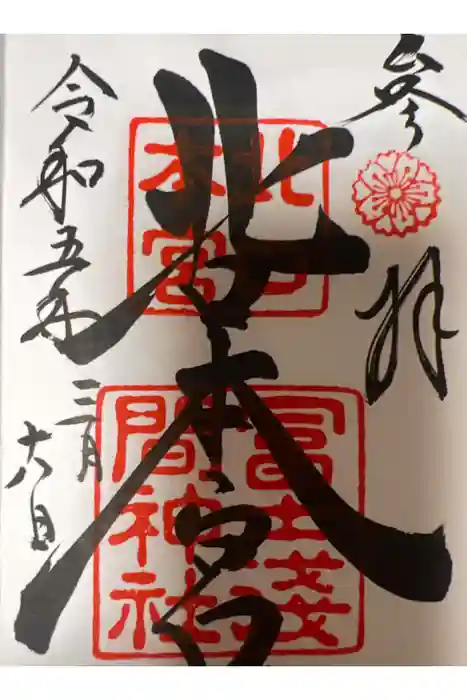 參拝
北口本宮
北口
本宮
冨士淺
間神社
令和五年
三月
六日